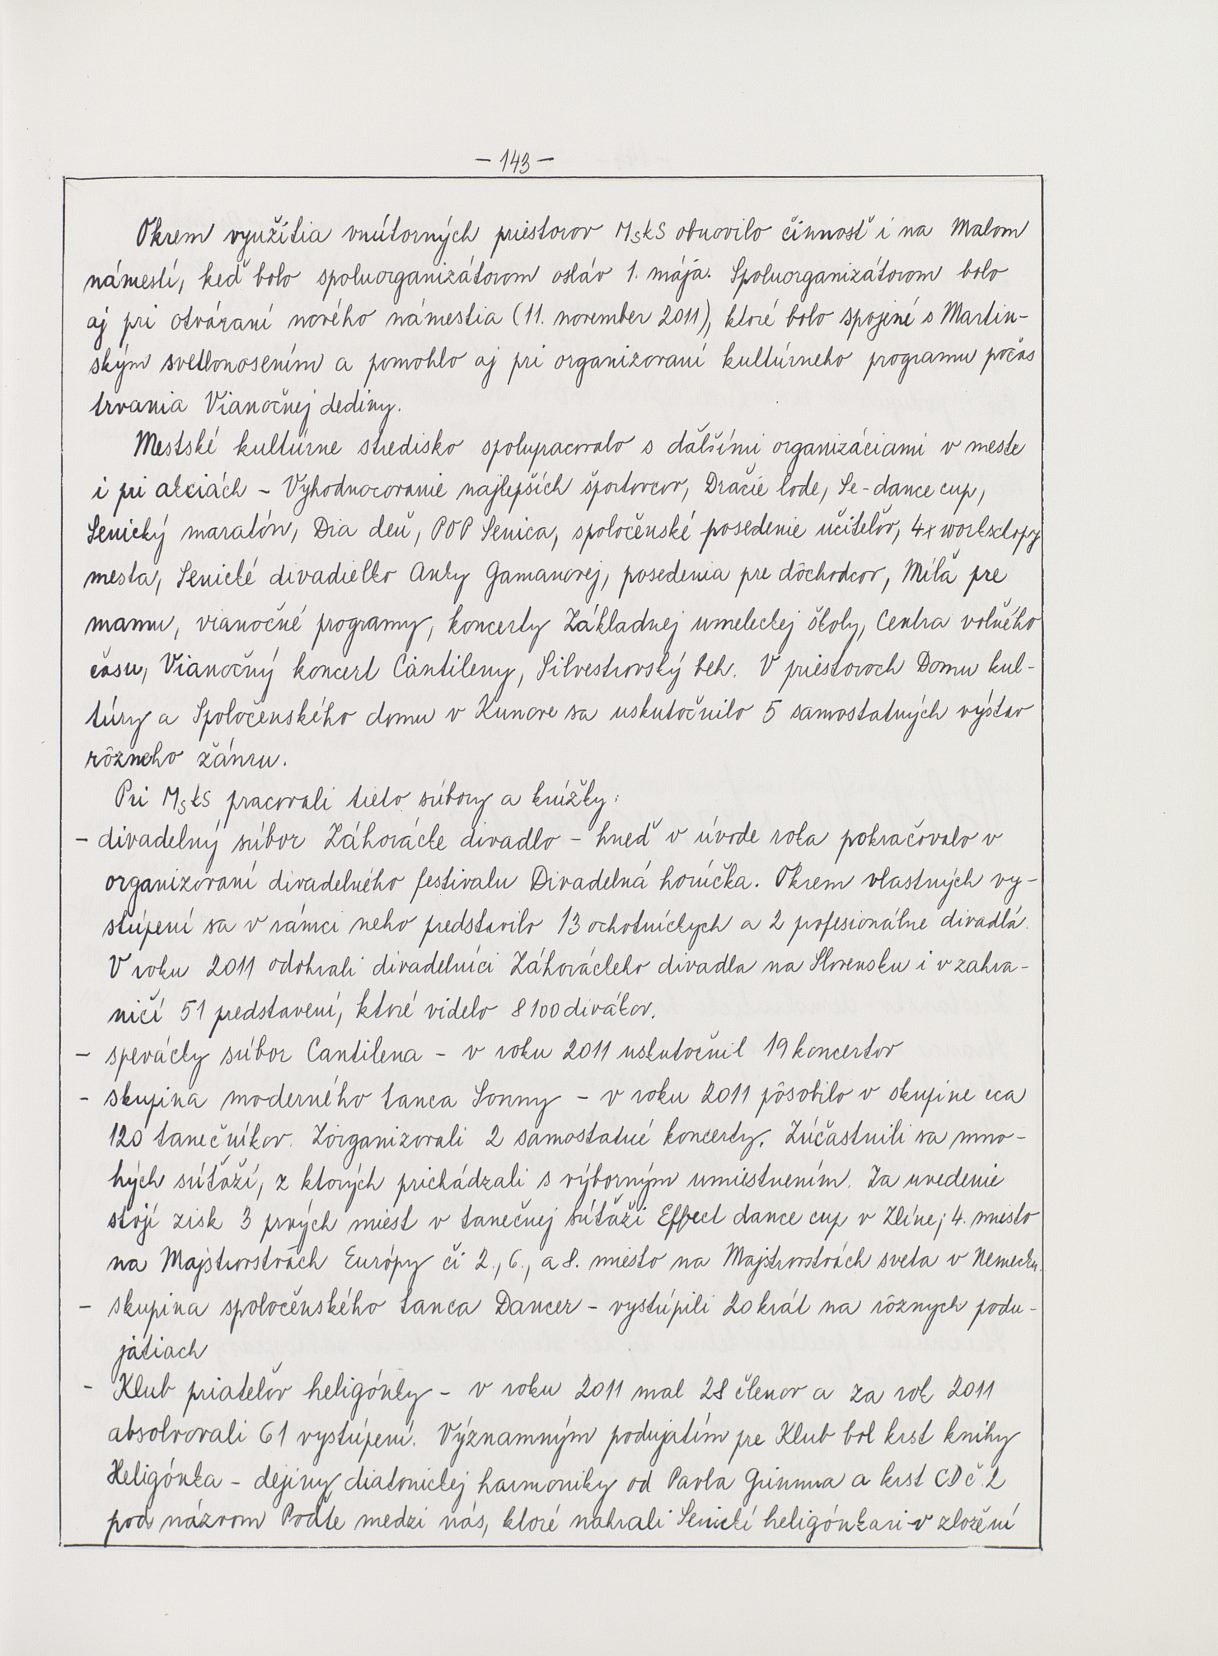 - 143 -
Okrem využitia vnútorných priestorov MsKS obnovilo činnosť i na Malom
námestí, keď bolo spoluorganizátorom osláv 1. mája. Spoluorganizátorom bolo
aj pri otváraní nového námestia (11. november 2011), ktoré bolo spojené s Martin-
ským svetlonosením a pomohlo aj pri organizovaní kultúrneho programu počas
trvania Vianočnej dediny.
Mestské kultúrne stredisko spolupracovalo s ďalšími organizáciami v meste
i pri akciách - Vyhodnocovanie najlepších športovcov, Dračie lode, Se-dance cup,
Senický maratón, Dia deň, POP Senica, spoločenské posedenie učiteľov, 4x workshopy
mesta, Senické divadielko Anky Gamanovej, posedenia pre dôchodcov, Míľa pre
mamu, vianočné programy, koncerty Základnej umeleckej školy, Centra voľného
času, Vianočný koncert Cantileny, Silvestrovský beh. V priestoroch Domu kul-
túry a Spoločenského domu v Kunove sa uskutočnilo 5 samostatných výstav
rôzneho žánru.
Pri MsKS pracovali tieto súbory a krúžky:
- divadelný súbor Záhorácke divadlo - hneď v úvode roka pokračovalo v
organizovaní divadelného festivalu Divadelná horúčka. Okrem vlastných vy-
stúpení sa v rámci neho predstavilo 13 ochotníckych a 2 profesionálne divadlá.
V roku 2011 odohrali divadelníci Záhoráckeho divadla na Slovensku i v zahra-
ničí 51 predstavení, ktoré videlo 8100 divákov.
- spevácky súbor Cantilena - v roku 2011 uskutočnil 19 koncertov
- skupina moderného tanca Sonny - v roku 2011 pôsobilo v skupine cca
120 tanečníkov. Zorganizovali 2 samostatné koncerty. Zúčastnili sa mno-
hých súťaží, z ktorých prichádzali s výborným umiestnením. Za uvedenie
stojí zisk 3 prvých miest v tanečnej súťaži Effect dance cup v Zlíne; 4. miesto
na Majstrovstvách Európy či 2., 6., a 8. miesto na Majstrovstvách sveta v Nemecku.
- skupina spoločenského tanca Dancer - vystúpili 20 krát na rôznych podu-
jatiach
- Klub priateľov heligónky - v roku 2011 mal 28 členov a za rok 2011
absolvovali 61 vystúpení. Významným podujatím pre Klub bol krst knihy
Heligónka - dejiny diatonickej harmoniky od Pavla Grimma a krst CD č. 2
pod názvom Poďte medzi nás, ktoré nahrali Senickí heligónkari v zložení